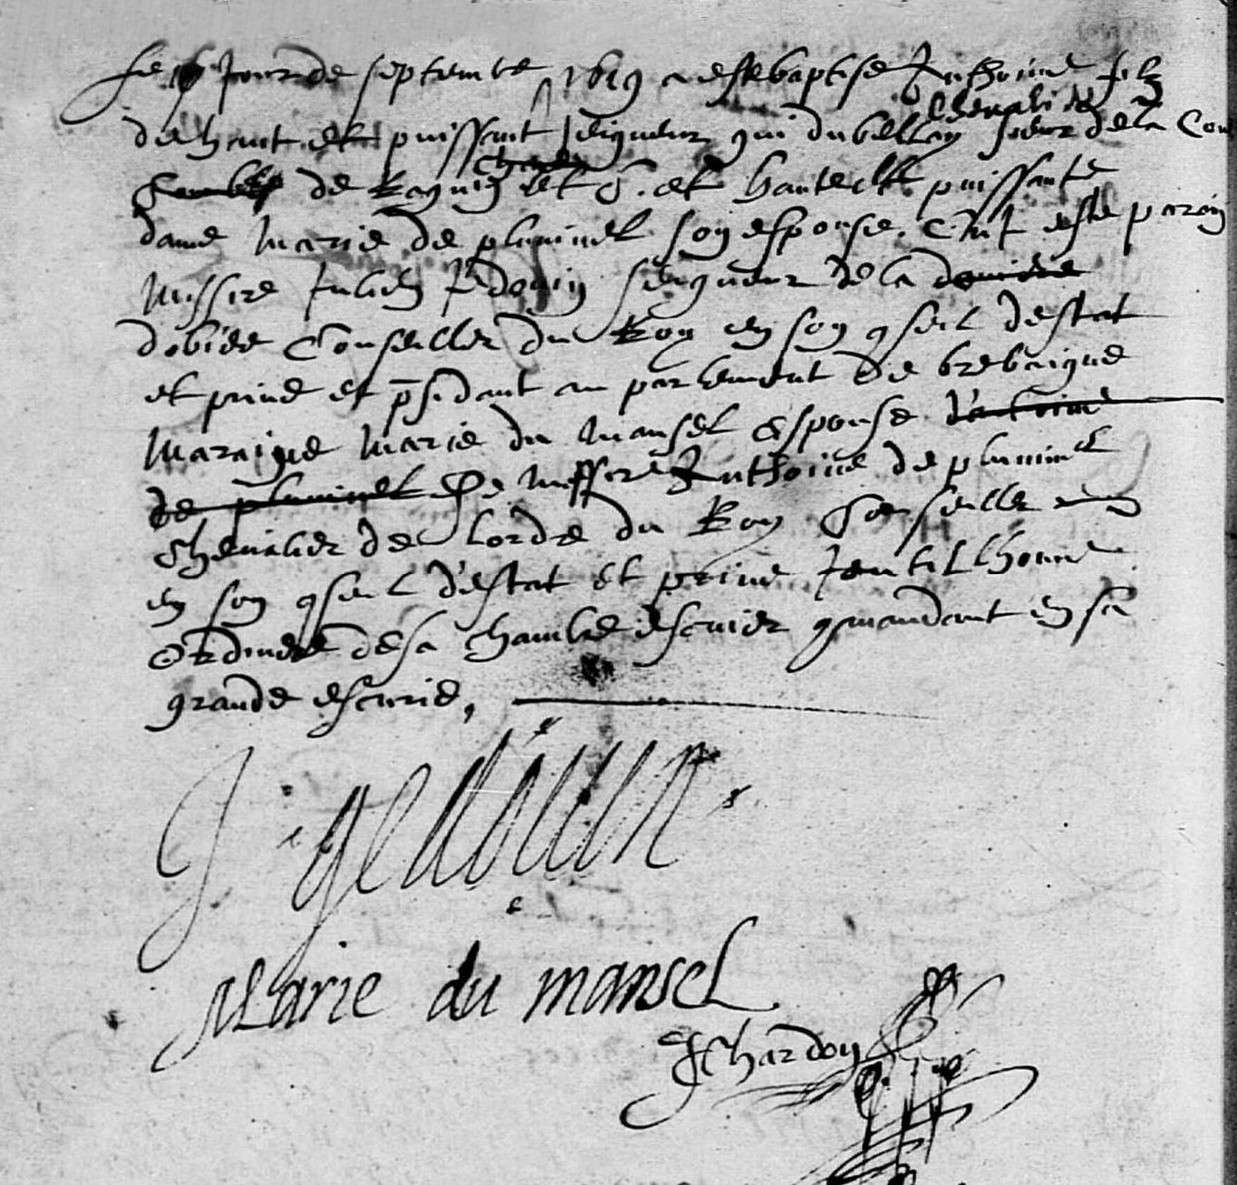 Le jour de septembre 1619 a este baptise Anthoine filz
de hault et puissant seigneur gui du bellay chevalier sieur de la Cou
de Raguin et c. et haulte et puissante
dame Marie de pluvinel son espouse. Ont este parain
Missire Julien Jedouin seigneur de la
dobiee Conseiller du Roy en son conseil destat
et prive et psidant au parlement de bretaigne
Maraigne Marie du Mansel espouse d'antoine
de pluvinel De Messire Anthoine de pluvinel
Chevalier de lordre du Roy Conseiller
en son conseil destat et prive Jentilhome
Ordinere de sa chambre escuier comandant en sa
grande escurie,
J. gedouin.
Marie du mansel
Chardon